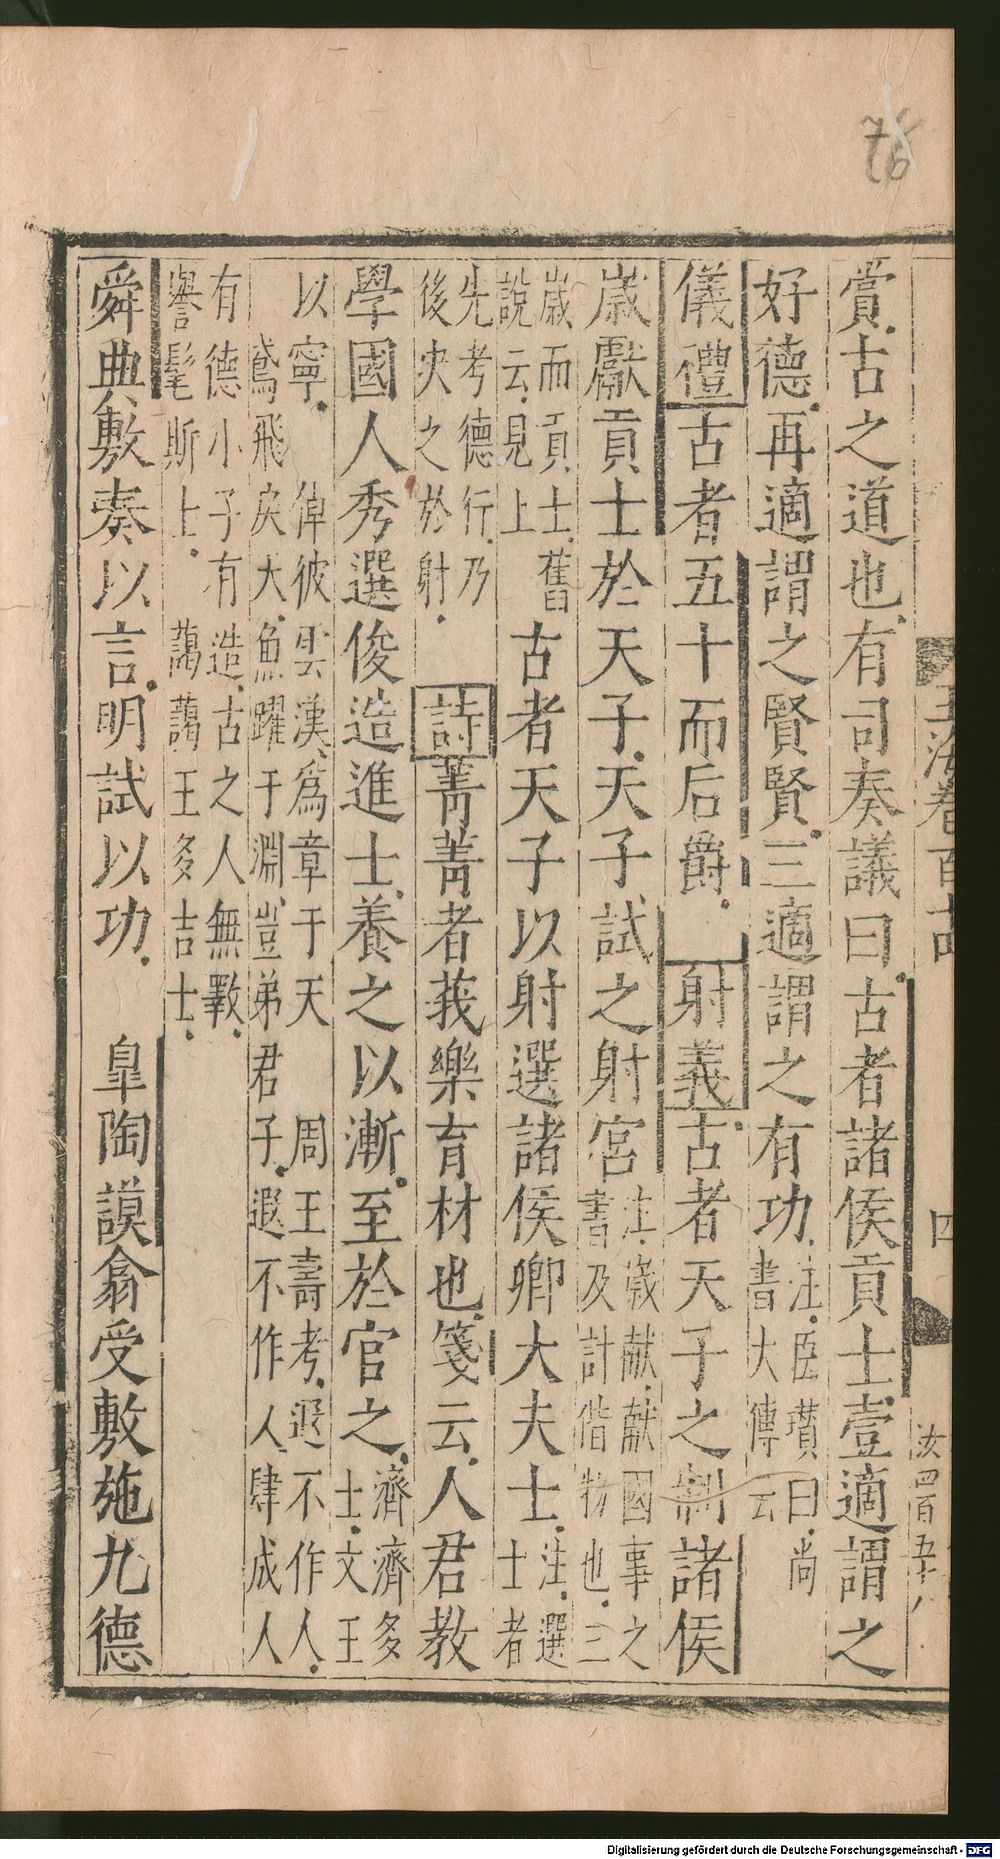 76
玉海卷百
四
汝四百五十八
賞古之道也有司奏議曰古者諸侯貢士壹適謂之
好德再適謂之賢賢三適謂之有功注臣瓚曰尚書大傳云
儀禮古者五十而后爵射義古者天子之制諸侯
歲獻貢士於天子天子試之射宮注歲献献國事之書及計偕物也三
歲而貢士舊說云見上古者天子以射選諸侯卿大夫士注選士者
先考德行乃後决之於射詩菁菁者莪樂育材也箋云人君教
學國人秀選俊造進士養之以漸至於官之濟濟多士文王
以寧倬彼雲漢爲章于天周王壽考遐不作人鳶飛戾天魚躍于淵豈弟君子遐不作人肆成人
有德小子有造古之人無斁譽髦斯士藹藹王多吉士
舜典敷奏以言明試以功皐陶謨翕受敷施九德
Digitalisierung gefördert durch die Deutsche Forschungsgemeinschaft - DFG